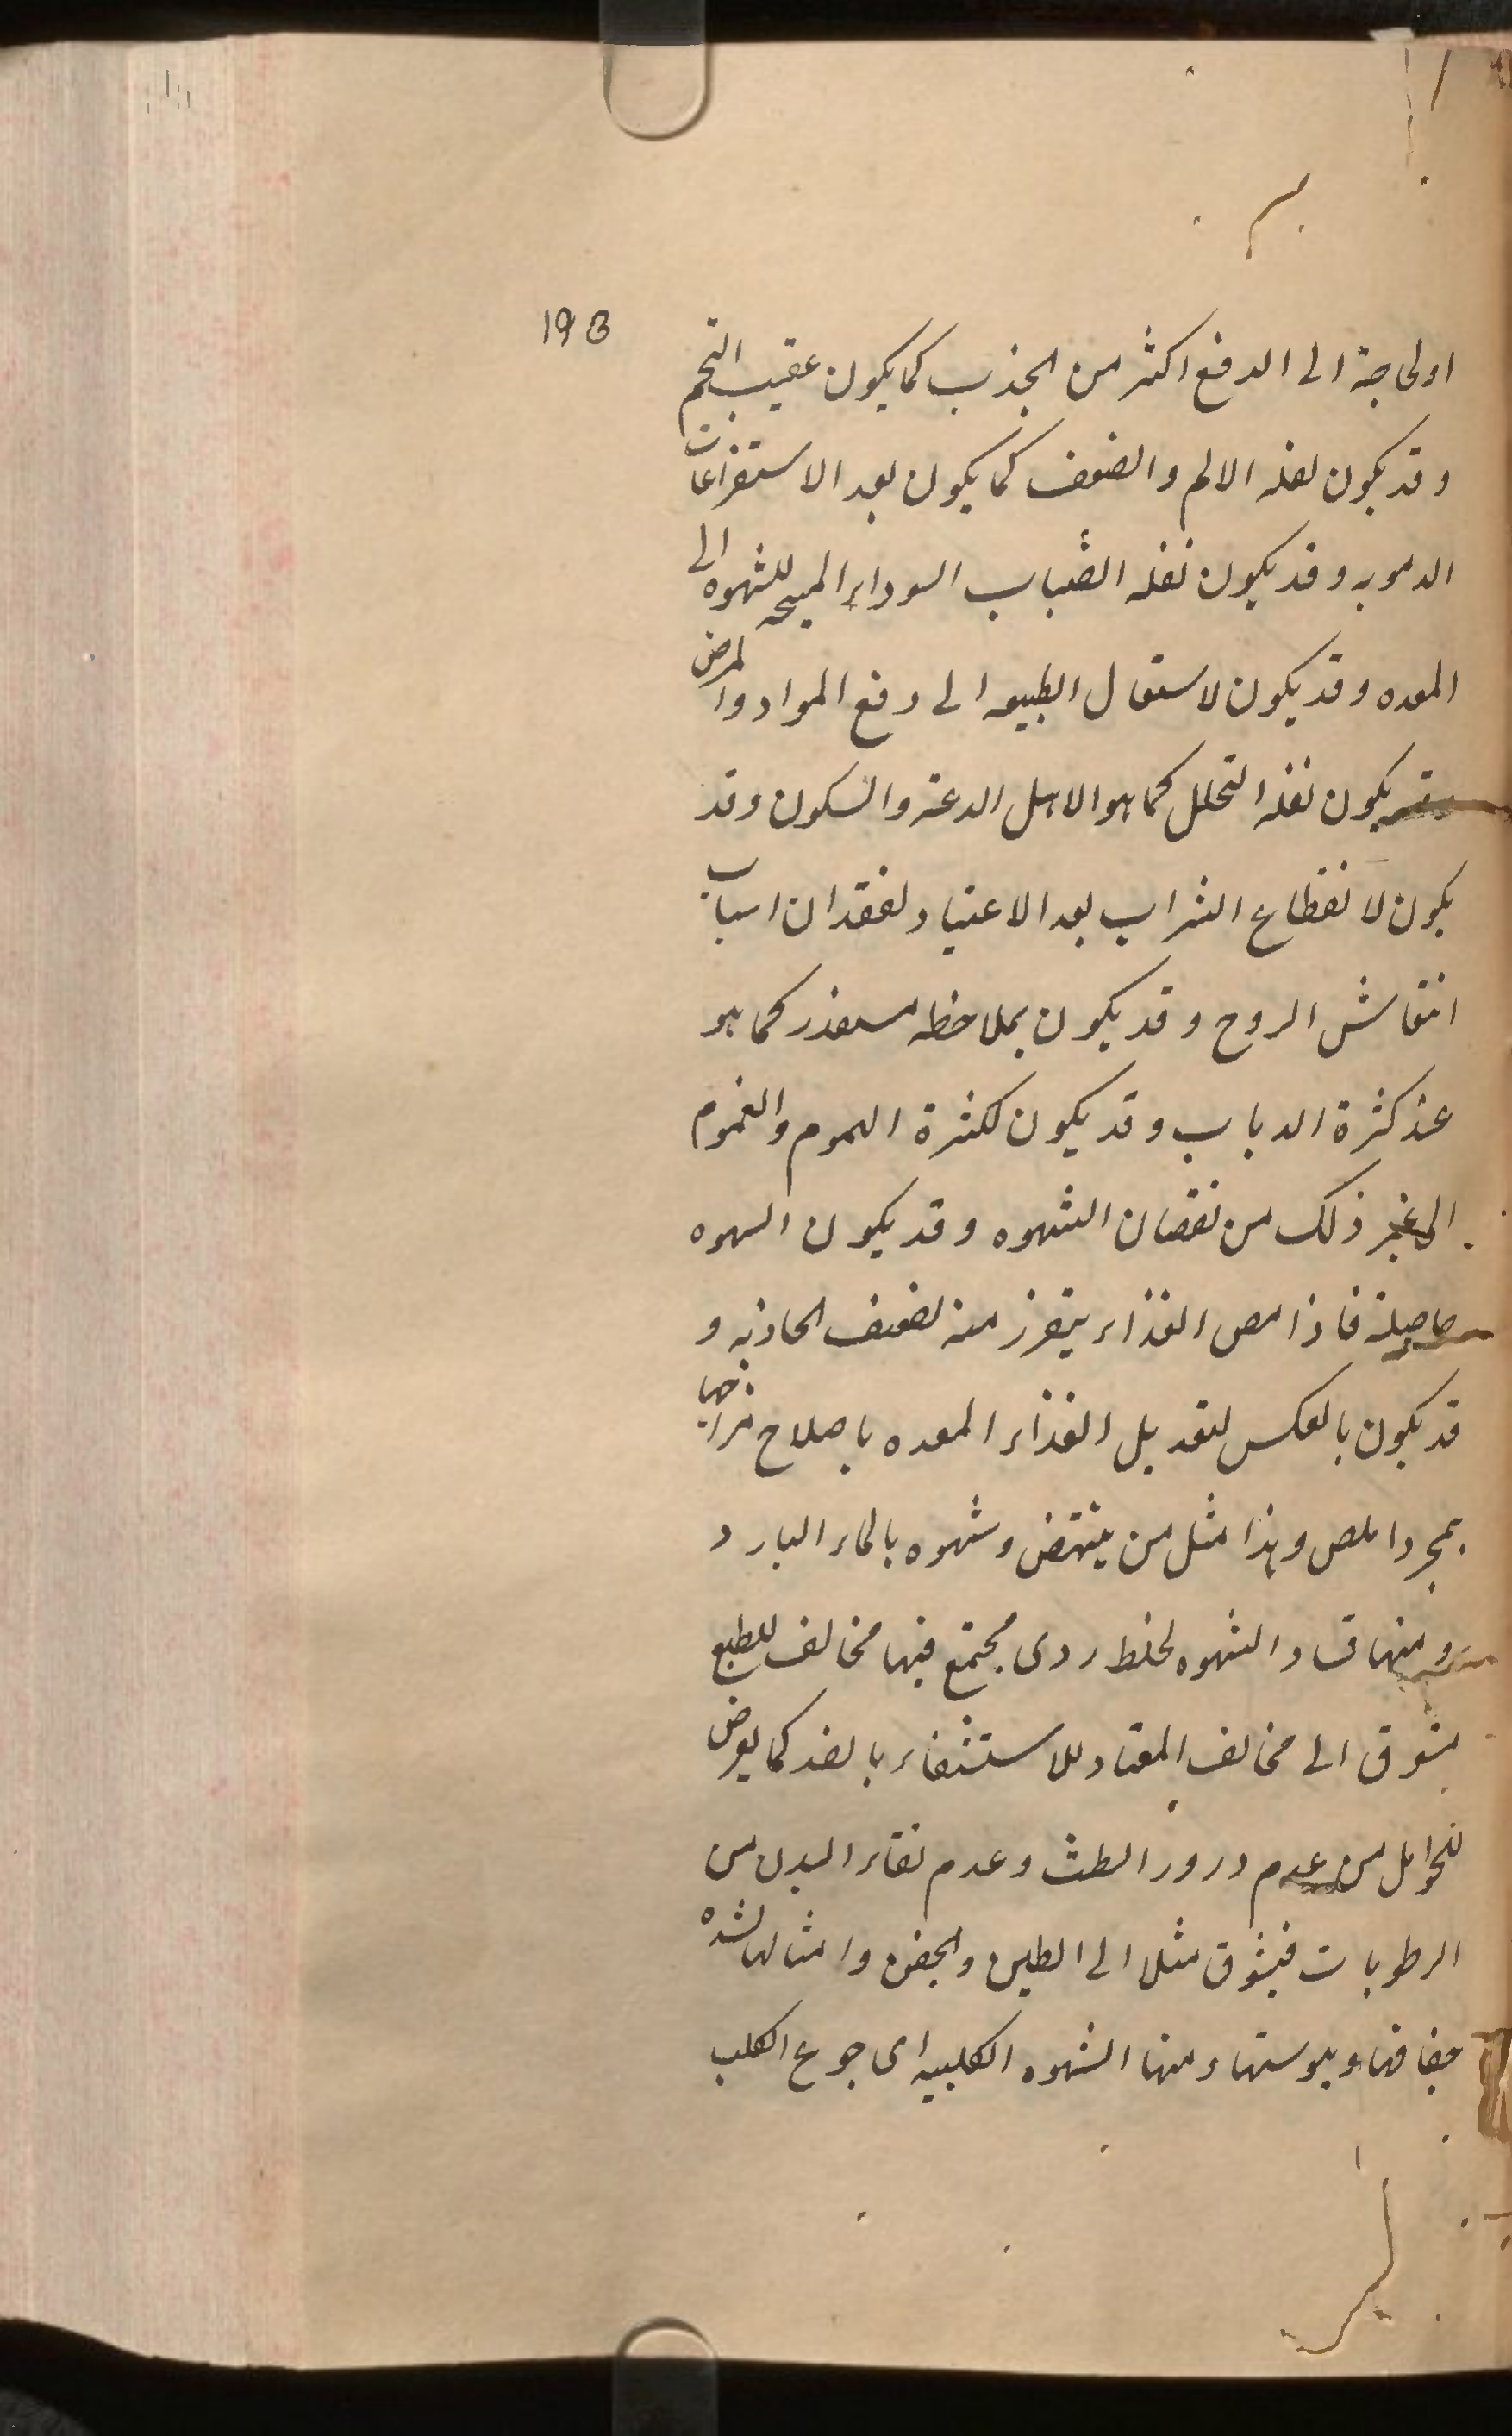 193
او لحاجة الى الدفع اكثر من الجذب كما يكون عقيب التخم
و قد يكون لقله الالم والضعف كما يكون بعد الاستفراغات
الدمويه و قد يكون لقله انصباب السوداء المهيجه للشهوه الى
المعده و قد يكون لاشتغال الطبيعه الى دفع المواد والمرض
و قد يكون لقله التحلل كما هو لاهل الدعة والسكون و قد
يكون لانقطاع الشراب بعد الاعتياد لفقدان اسباب
انتعاش الروح و قد يكون بملاحظه مستقذر كما هو
عند كثرة الذباب و قد يكون لكثرة الهموم والغموم
الى غير ذلك من نقصان الشهوه و قد يكون الشهوه
حاصلة فاذا مص الغذاء يتقزز منه لضعف الجاذبه و
قد يكون بالعكس لتعديل الغذاء المعده باصلاح مزاجها
بمجرد المص و هذا مثل من ينتهض شهوه بالماء البارد
و منها فساد الشهوه لخلط ردى مجتمع فيها مخالف للطبع
يتشوق الى مخالف المعتاد للاستشفاء بالضد كما يعرض
للحوامل من عدم درور الطمث و عدم نقاء البدن من
الرطوبات فيتشوق مثلا الى الطين والجص وامثالها لشده
جفافها و يبوستها و منها الشهوه الكلبيه اى جوع الكلب